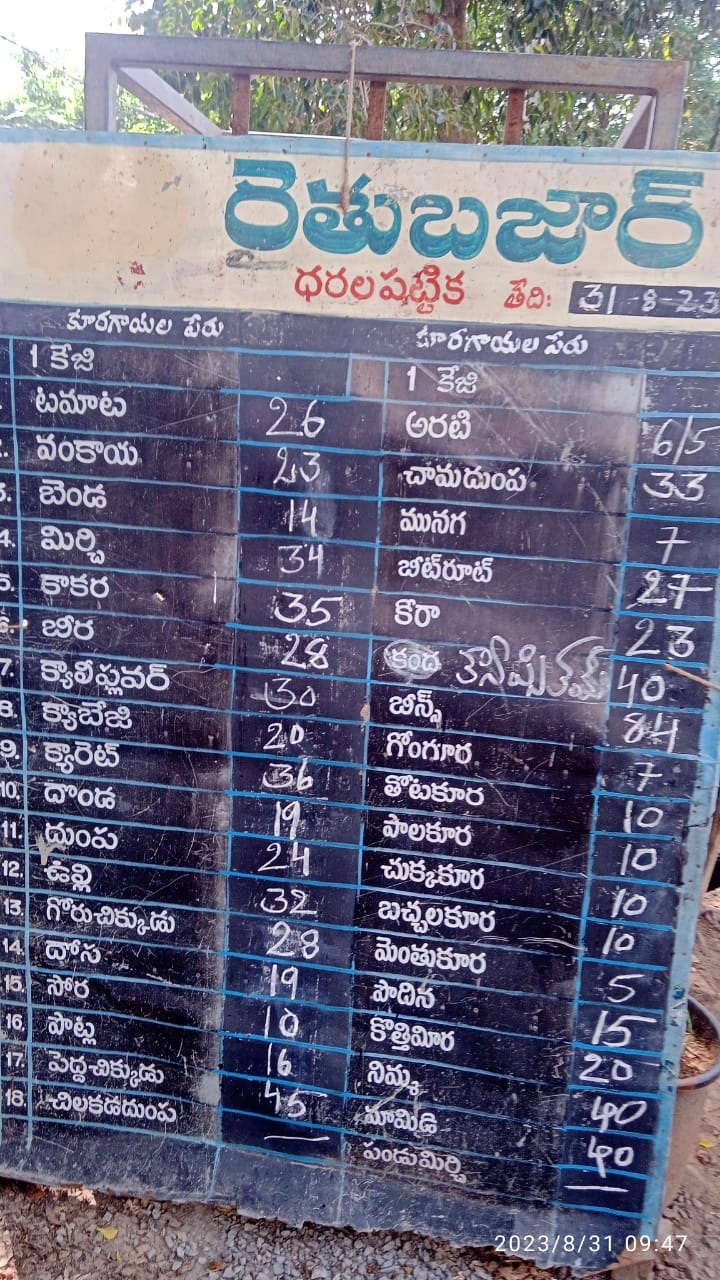 రైతుబజార్
ధరలపట్టిక తేది: 31-8-23
కూరగాయల పేరు
1 కేజి
1. టమాట 26
2. వంకాయ 23
3. బెండ 14
4. మిర్చి 34
5. కాకర 35
6. బీర 28
7. క్యాలీఫ్లవర్ 30
8. క్యాబేజి 20
9. క్యారెట్ 36
10. దొండ 19
11. దుంప 24
12. ఉల్లి 32
13. గోరుచిక్కుడు 28
14. దోస 19
15. సోర 10
16. పొట్ల 16
17. పెద్దచిక్కుడు 45
18. చిలకడదుంప —
కూరగాయల పేరు
1 కేజి
అరటి 6/5
చామదుంప 33
మునగ 7
బీట్‌రూట్ 27
కీరా 23
కంద 40
బీన్స్ 84
గోంగూర 7
తోటకూర 10
పాలకూర 10
చుక్కకూర 10
బచ్చలకూర 10
మెంతుకూర 5
పొదిన 15
కొత్తిమీర 20
నిమ్మ 40
మామిడి 40
పండుమిర్చి —
2023/8/31 09:47